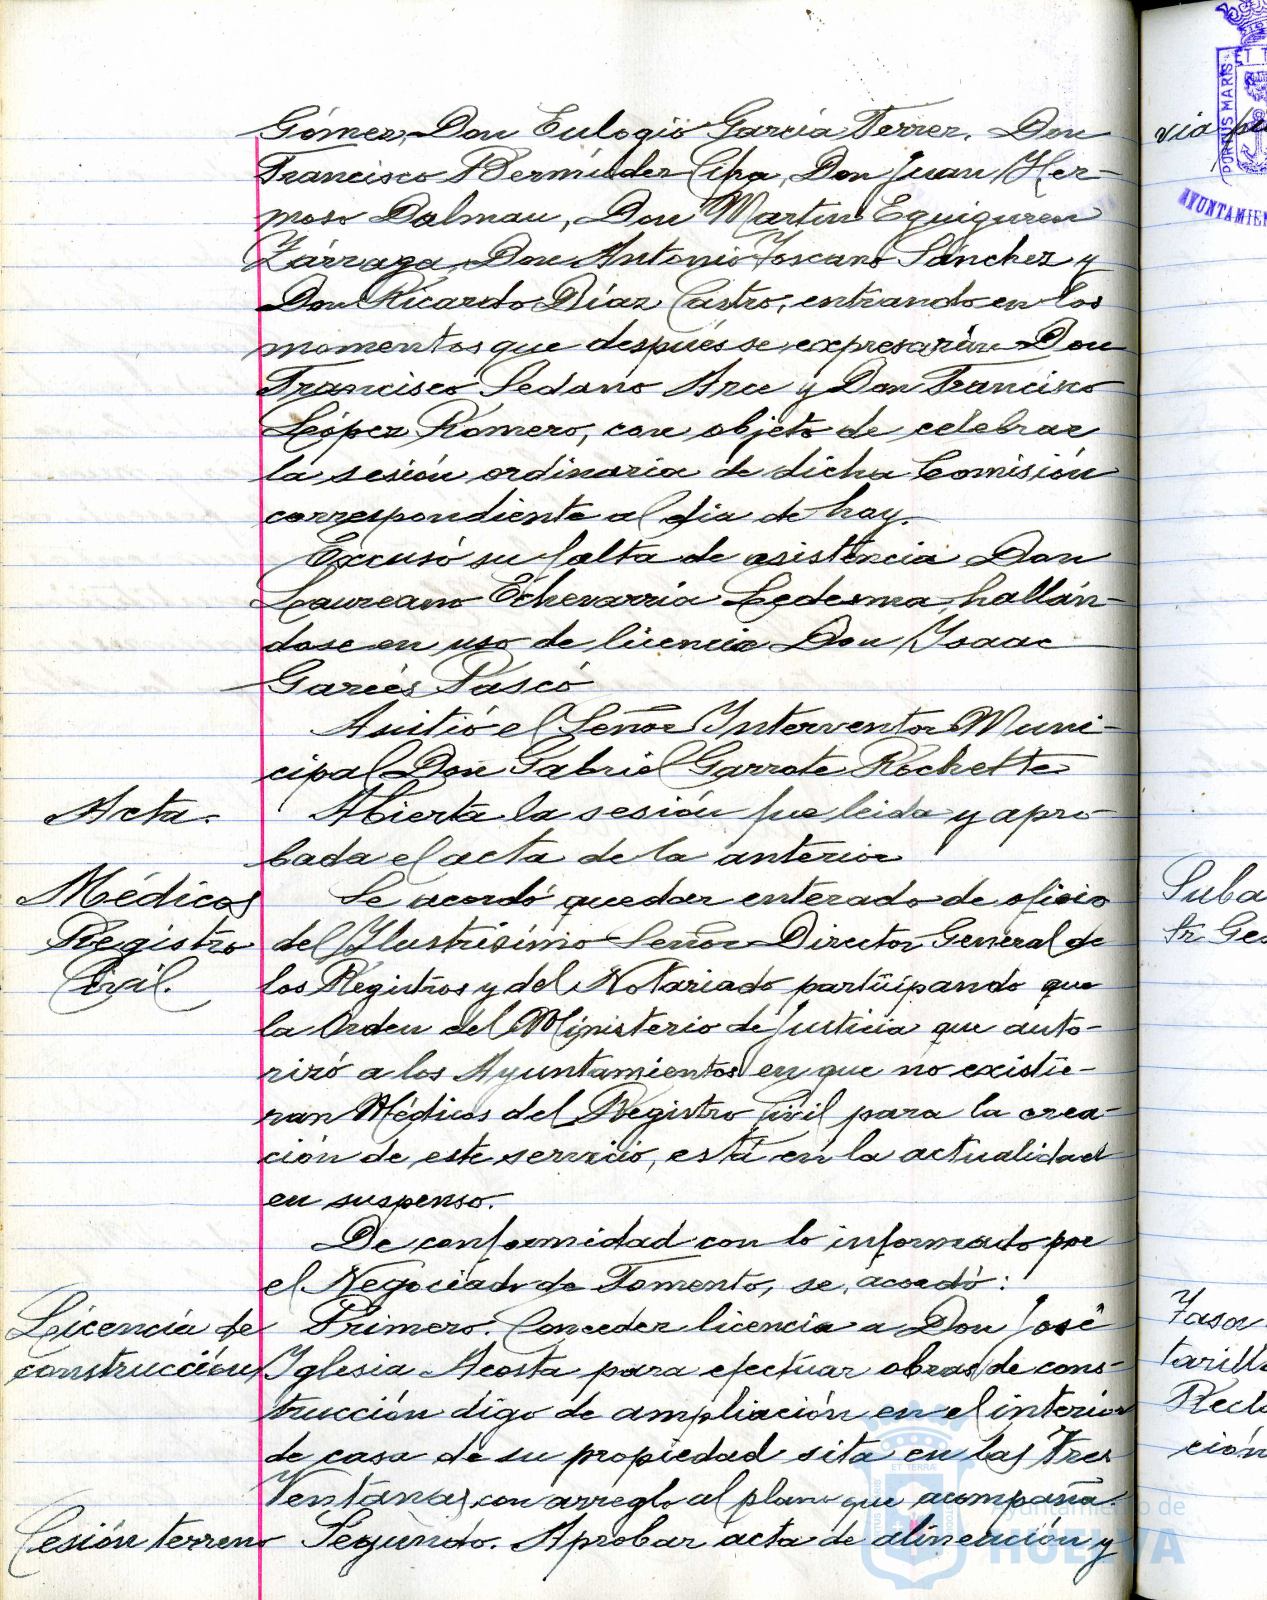 Gómez, Don Eulogio García Ferrer. Don
Francisco Bermúdez Cipa, Don Juan Her-
moso Dalmau, Don Martín Eguiguren
Zárraga, Don Antonio Toscano Sánchez y
Don Ricardo Díaz Castro, entrando en los
momentos que después se expresarán Don
Francisco Sedano Arce y Don Francisco
López Romero, con objeto de celebrar
la sesión ordinaria de dicha Comisión
correspondiente al dia de hoy.
Excusó su falta de asistencia Don
Laureano Echevarría Ledesma, hallán-
dose en uso de licencia Don Ysaac
Garcés Pascó
Asitió el Señor Ynterventor Muni-
cipal Don Gabriel Garrote Rochette
Acta.
Abierta la sesión fue leida y apro-
bada el acta de la anterior
Médicos
Registro
Civil.
Se acordó quedar enterado de oficio
del Ylustrísimo Señor Director General de
los Registros y del Notariado participando que
la Orden del Ministerio de Justicia que auto-
rizó a los Ayuntamientos en que no existie-
ran Médicos del Registro Civil para la crea-
ción de este servicio, está en la actualidad
en suspenso.
De conformidad con lo informado por
el Negociado de Fomento, se acordó:
Licencia de
construcción
Primero. Conceder licencia a Don José
Yglesia Acosta para efectuar obras de cons-
trucción digo de ampliación en el interior
de casa de su propiedad sita en las Tres
Ventanas, con arreglo al plano que acompaña.
Cesión terreno
Segundo. Aprobar acta de alineación y
via
PORTUS MARIS
ET T
AYUNTAMIEN
Suba
Sr Ges
Tasa
tarill
Recl
ción
Ayuntamiento de
HUELVA